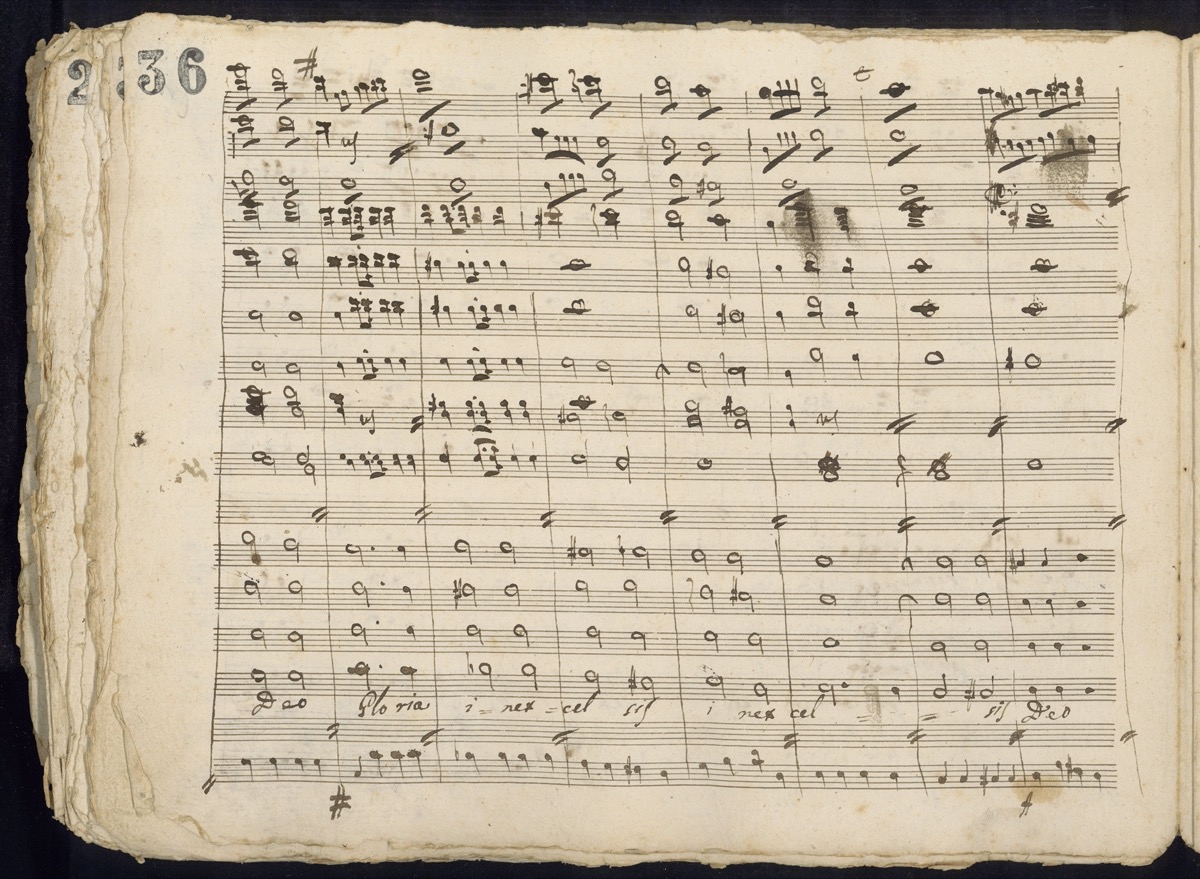 236
Deo Gloria i = nex = cel sis i nex cel = = sis Deo